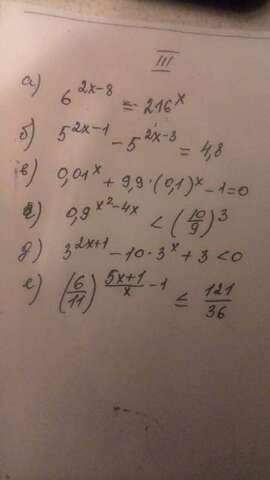 III
а) 6^{2x-8} = 216^x
б) 5^{2x-1} - 5^{2x-3} = 4,8
в) 0,01^x + 9,9·(0,1)^x - 1 = 0
г) 0,9^{x^2-4x} < (10/9)^3
д) 3^{2x+1} - 10·3^x + 3 < 0
е) (6/11)^{(5x+1)/x - 1} ≤ 121/36